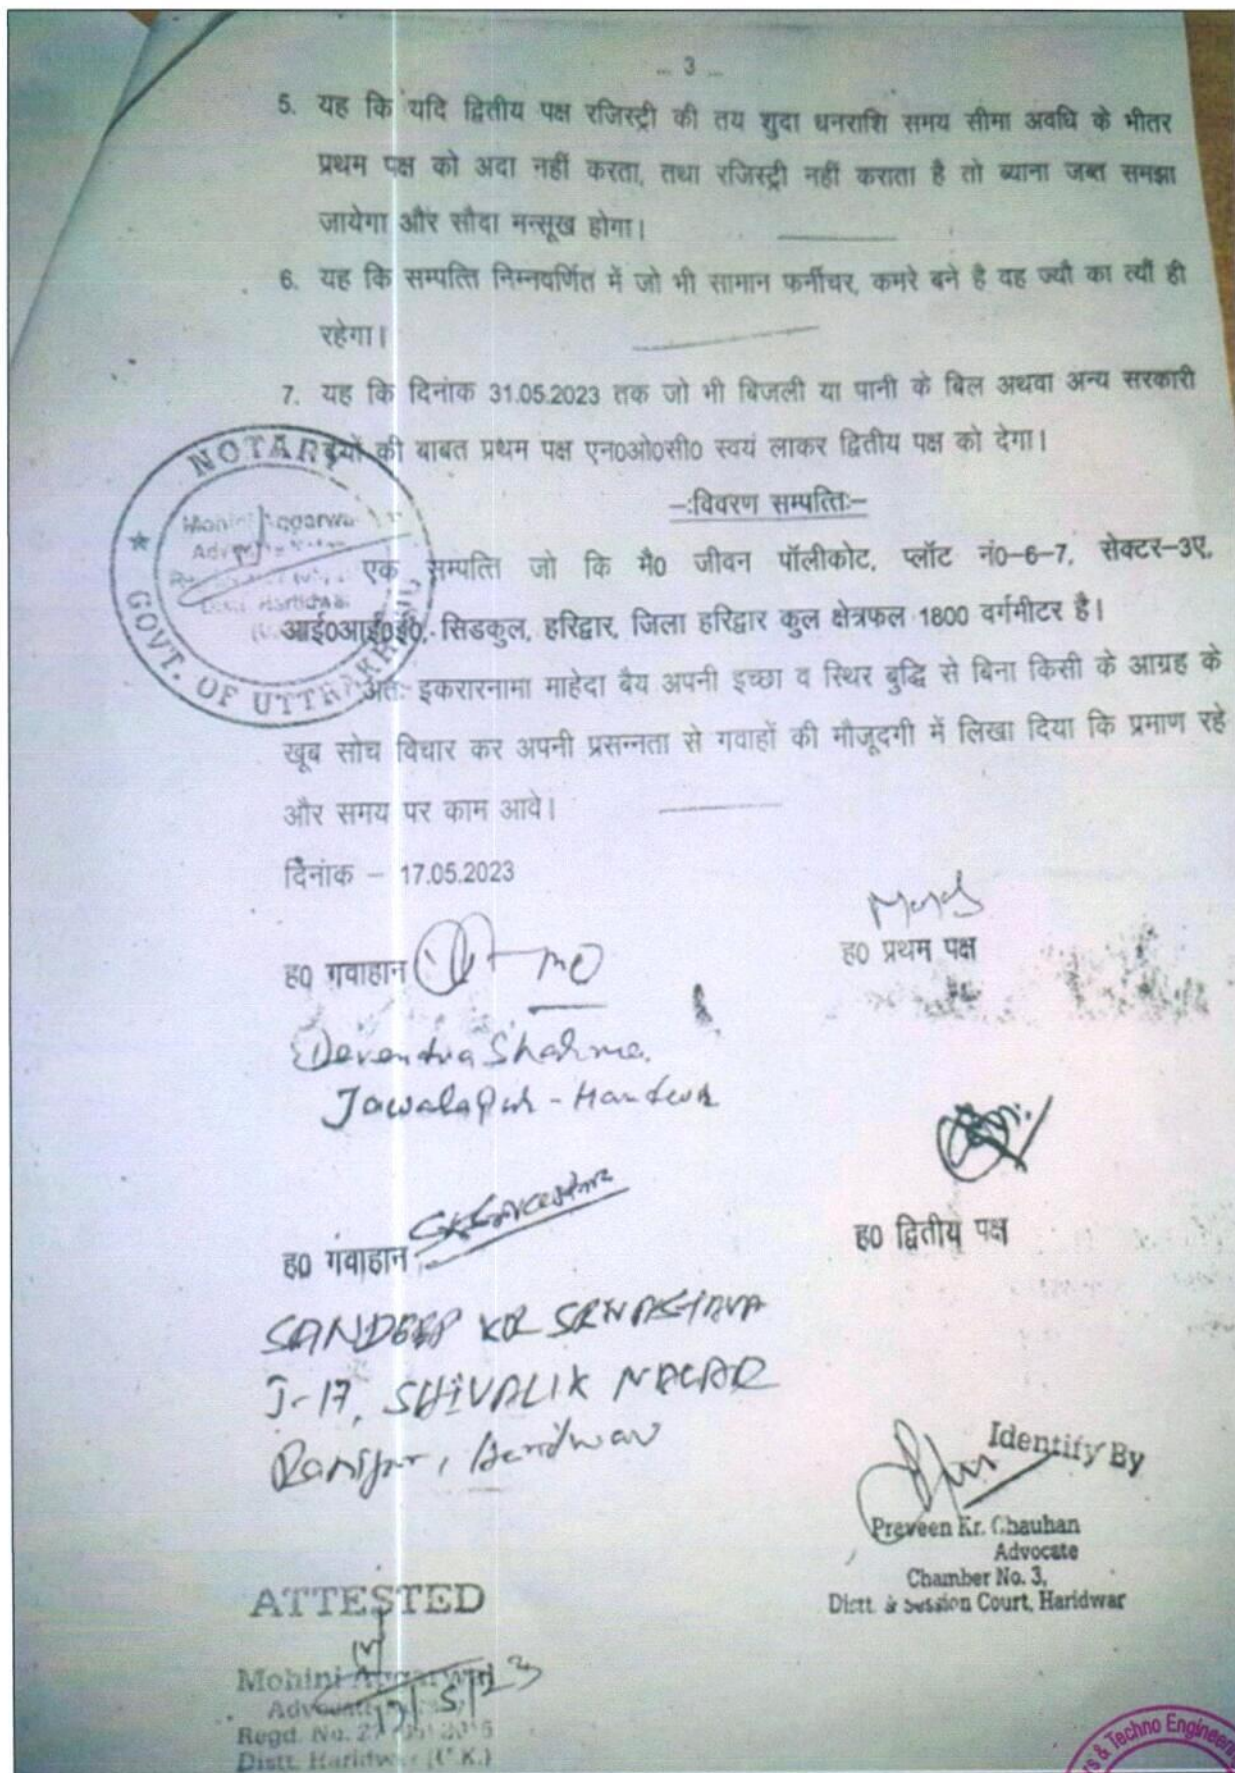 ... 3 ...
5. यह कि यदि द्वितीय पक्ष रजिस्ट्री की तय शुदा धनराशि समय सीमा अवधि के भीतर
प्रथम पक्ष को अदा नहीं करता, तथा रजिस्ट्री नहीं कराता है तो ब्याना जब्त समझा
जायेगा और सौदा मन्सूख होगा।
6. यह कि सम्पत्ति निम्नवर्णित में जो भी सामान फर्नीचर, कमरे बने है वह ज्यौ का त्यौं ही
रहेगा।
7. यह कि दिनांक 31.05.2023 तक जो भी बिजली या पानी के बिल अथवा अन्य सरकारी
की बाबत प्रथम पक्ष एन0ओ0सी0 स्वयं लाकर द्वितीय पक्ष को देगा।
NOTARY
GOVT. OF UTTRAKHAND
-:विवरण सम्पत्तिः-
एक सम्पत्ति जो कि मै0 जीवन पॉलीकोट, प्लॉट नं0-6-7, सेक्टर-3ए,
आई0आई0ई0, सिडकुल, हरिद्वार, जिला हरिद्वार कुल क्षेत्रफल 1800 वर्गमीटर है।
अतः इकरारनामा माहेदा बैय अपनी इच्छा व स्थिर बुद्धि से बिना किसी के आग्रह के
खूब सोच विचार कर अपनी प्रसन्नता से गवाहों की मौजूदगी में लिखा दिया कि प्रमाण रहे
और समय पर काम आवे।
दिनांक - 17.05.2023
ह0 प्रथम पक्ष
ह0 गवाहान
Devendra Sharma.
Jawalapur - Haridwar
ह0 द्वितीय पक्ष
ह0 गवाहान
SANDEEP KR SRIVASTAVA
J-17, SHIVALIK NAGAR
Ranipur, Haridwar
Identify By
Praveen Kr. Chauhan
Advocate
Chamber No. 3,
Distt. & Session Court, Haridwar
ATTESTED
Mohini Aggarwal
17/5/23
Advocate
Regd. No.
Distt. Haridwar (U.K.)
& Techno Engineering